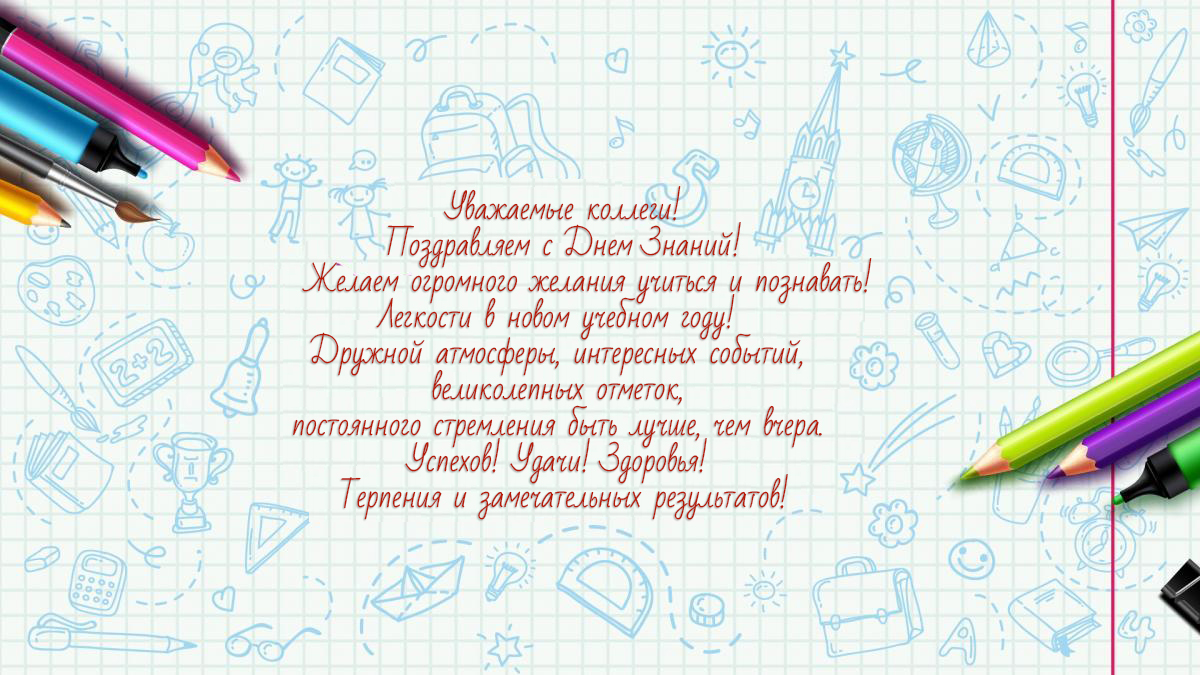 Уважаемые коллеги!
Поздравляем с Днем Знаний!
Желаем огромного желания учиться и познавать!
Легкости в новом учебном году!
Дружной атмосферы, интересных событий,
великолепных отметок,
постоянного стремления быть лучше, чем вчера.
Успехов! Удачи! Здоровья!
Терпения и замечательных результатов!
5
S
2+2
A
4